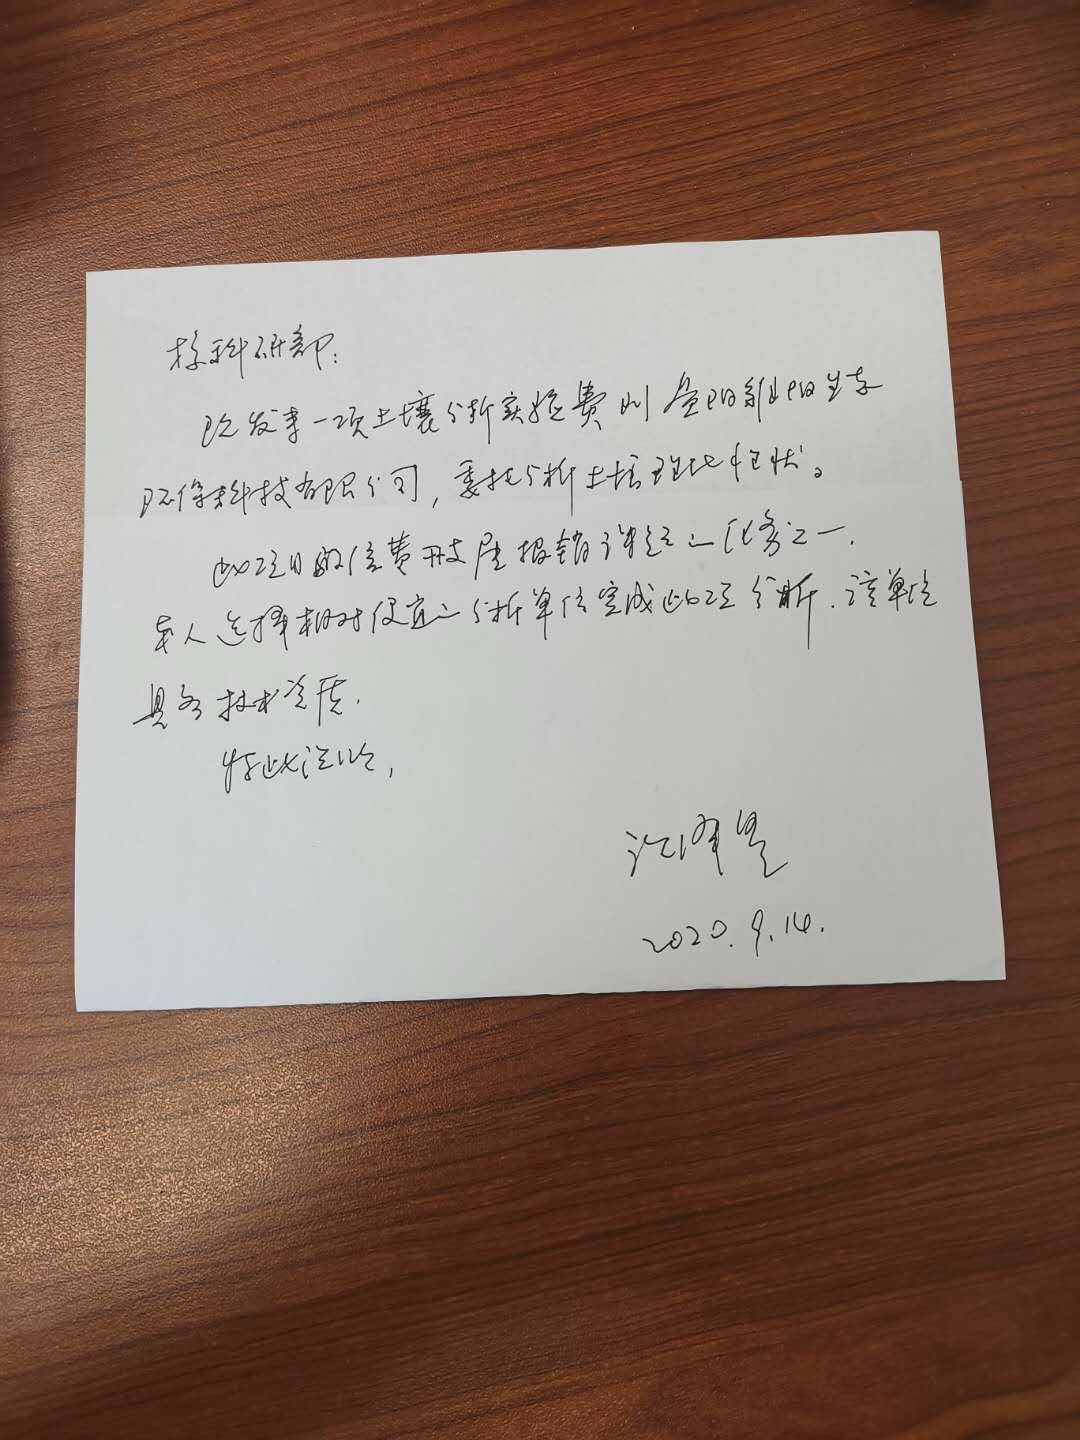 校科研部:
现发来一项土壤分析实验费
环保科技有限公司,委托分析土壤理化性状。
此项目的经费开支是报销课题的任务之一.
本人选择相对便宜的分析单位完成此项分析.该单位
具备技术资质.
特此说明,
2020.9.14.